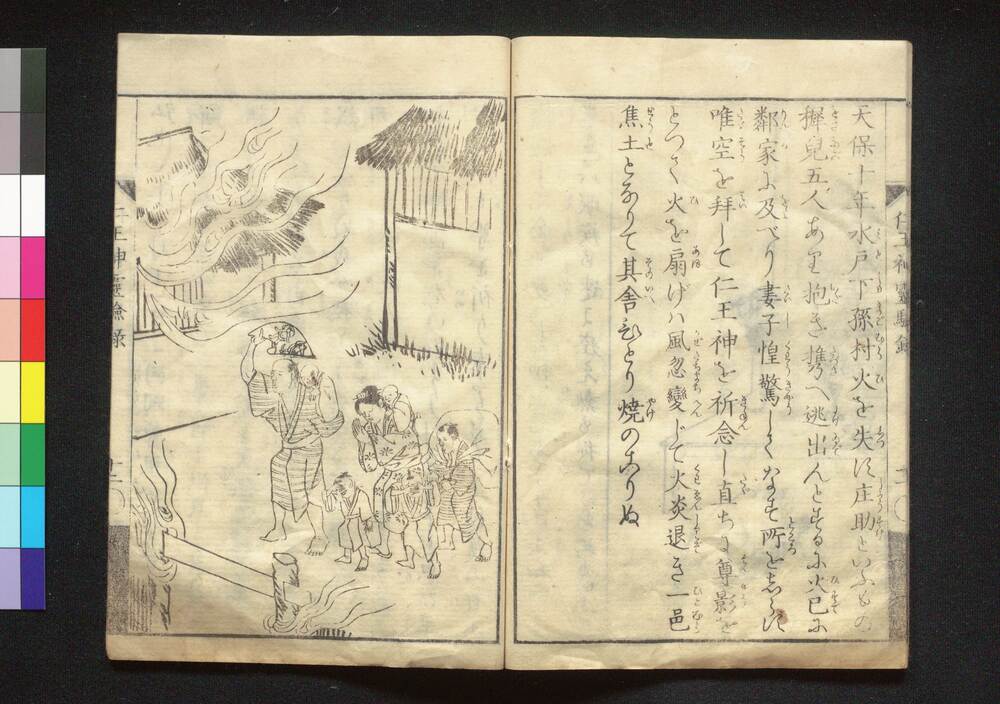 天保十年水戸下孫村火を失す庄助といふもの
稺兒五人あり抱き携へ逃出んとするに火已に
鄰家に及べり妻子惶驚してなす所をしらず
唯空を拜して仁王神を祈念し直ちに尊影を
とつて火を扇げハ風忽變じて火炎退き一邑
焦土となりて其舎ひとり焼のこりぬ
仁王神靈驗録